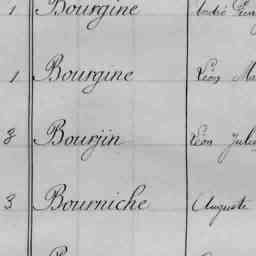 1 Bourgine André
1 Bourgine Léon
3 Bourjin Léon Jules
3 Bourniche Auguste